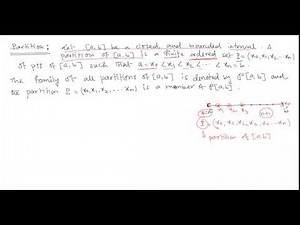 Partition: Let [a,b] be a closed and bounded interval. A
partition of [a,b] is a finite ordered set P = (x₀, x₁, x₂, ... xₙ)
of pts of [a,b] such that a = x₀ < x₁ < x₂ < ... < xₙ = b.
The family of all partitions of [a,b] is denoted by P[a,b] and
the partition P = (x₀, x₁, x₂, ... xₙ) is a member of P[a,b].
x₁ x₂ x₃ b
P = (x₀, x₁, x₂, x₃, ... xₙ)
partition of [a,b]